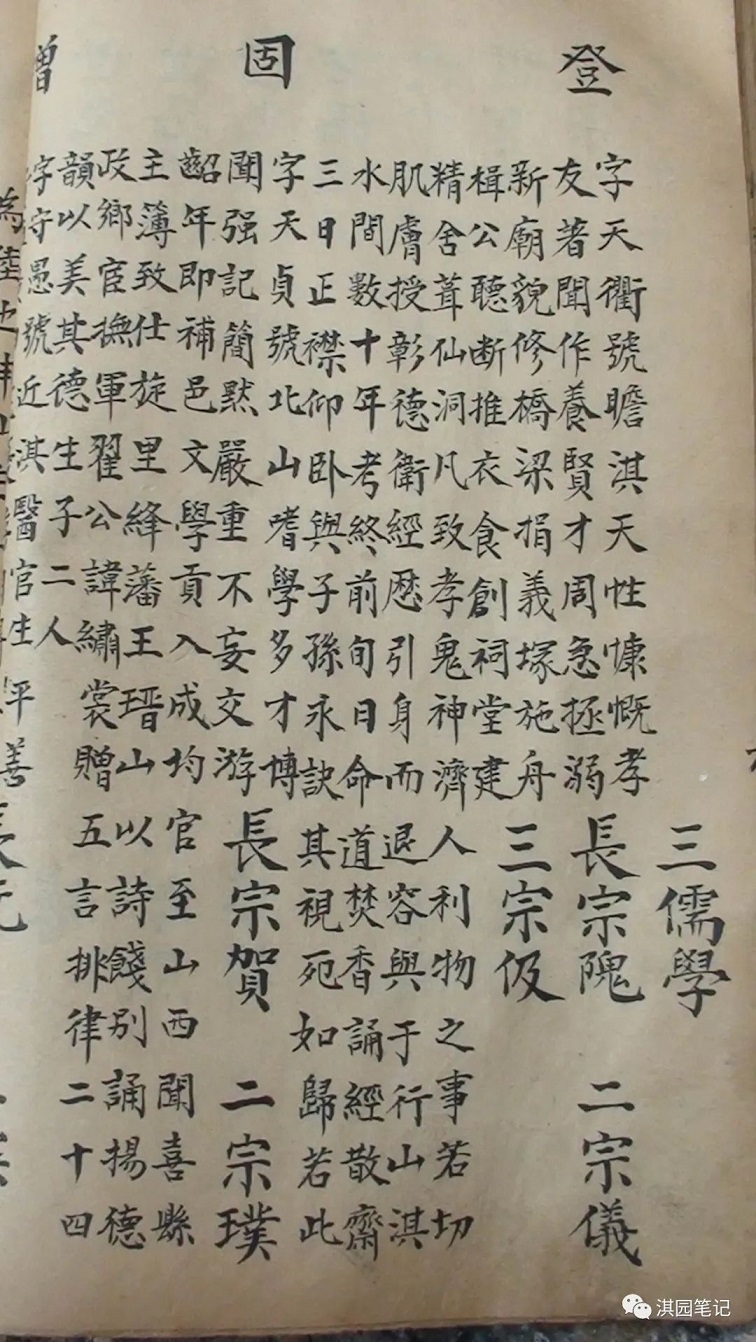 三儒學
登
字天衢號瞻淇天性慷慨孝
友著聞作養賢才周急拯溺
新廟貌修橋梁捐義塚施舟
楫公聽断推衣食創祠堂建
精舍葺仙洞凡致孝鬼神濟人利物之事若切
肌膚授彰德衛經歷引身而退容與于行山淇
水間數十年考終前旬日命道焚香誦經散齋
三日正襟仰卧與子孫永訣其視死如歸若此
長宗隗 二宗儀
三宗伋
固
字天貞號北山嗜學多才博
聞强記簡默嚴重不妄交游
齠年即補邑文學貢入成均官至山西聞喜縣
主簿致仕旋里絳藩王瑨山以詩餞別誦揚德
政鄉宦撫軍翟公諱繡裳贈五言排律二十四
韻以美其德生子二人
長宗賀 二宗璞
字守愚號近淇醫官生平善
淇园笔记